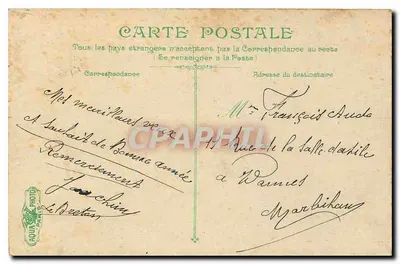 CARTE POSTALE
Tous les pays étrangers n'acceptent pas la Correspondance au recto
(Se renseigner à la Poste)
Correspondance
Adresse du destinataire
Mes meilleurs vœux
et souhait de Bonne année
Remerciement
Joachim
Le Breton
Mr François
Rue de la Salle d'asile
à Vannes
Morbihan
CPAPHIL
AQUA PHOTO
PARIS